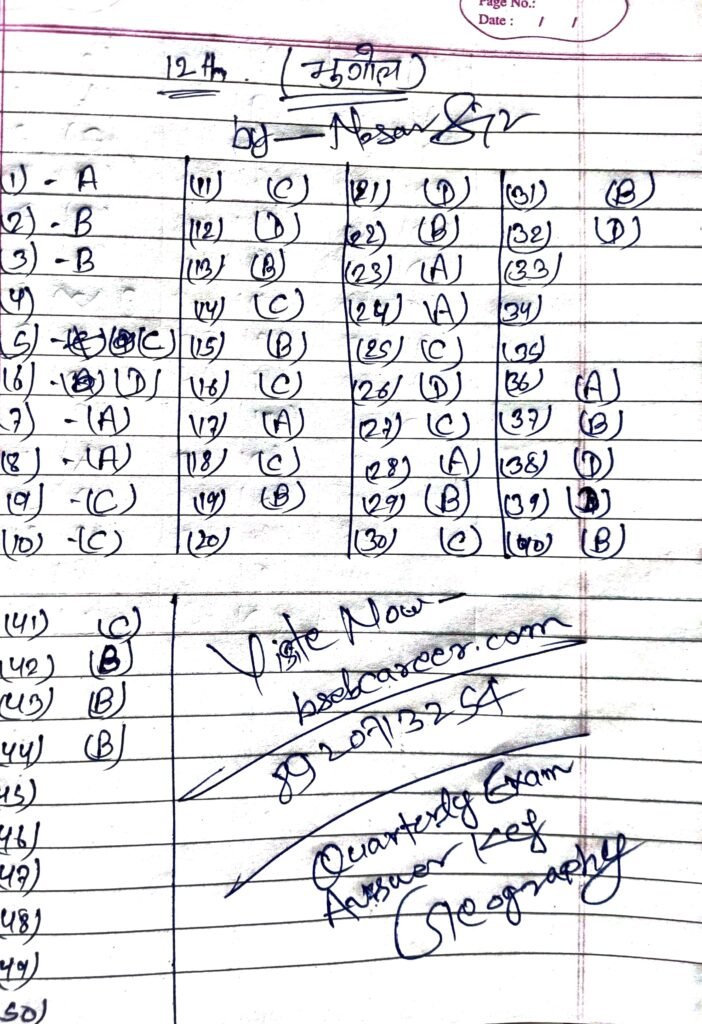 Page No.:
Date : / /
12th. (भूगोल)
by — Nosar Sir
1) - A (11) (C) (21) (D) (31) (B)
2) - B (12) (D) (22) (B) (32) (D)
3) - B (13) (B) (23) (A) (33)
4) (14) (C) (24) (A) (34)
5) - (C) (15) (B) (25) (C) (35)
(6) - (D) (16) (C) (26) (D) (36) (A)
7) - (A) (17) (A) (27) (C) (37) (B)
(8) - (A) (18) (C) (28) (A) (38) (D)
(9) - (C) (19) (B) (29) (B) (39)
(10) - (C) (20) (30) (C) (40) (B)
(41) (C)
(42) (B)
(43) (B)
44) (B)
45)
46)
47)
48)
49)
50)
Visite Now —
bsebcareer.com
8920713254
Quarterly Exam
Answer Key
Geography